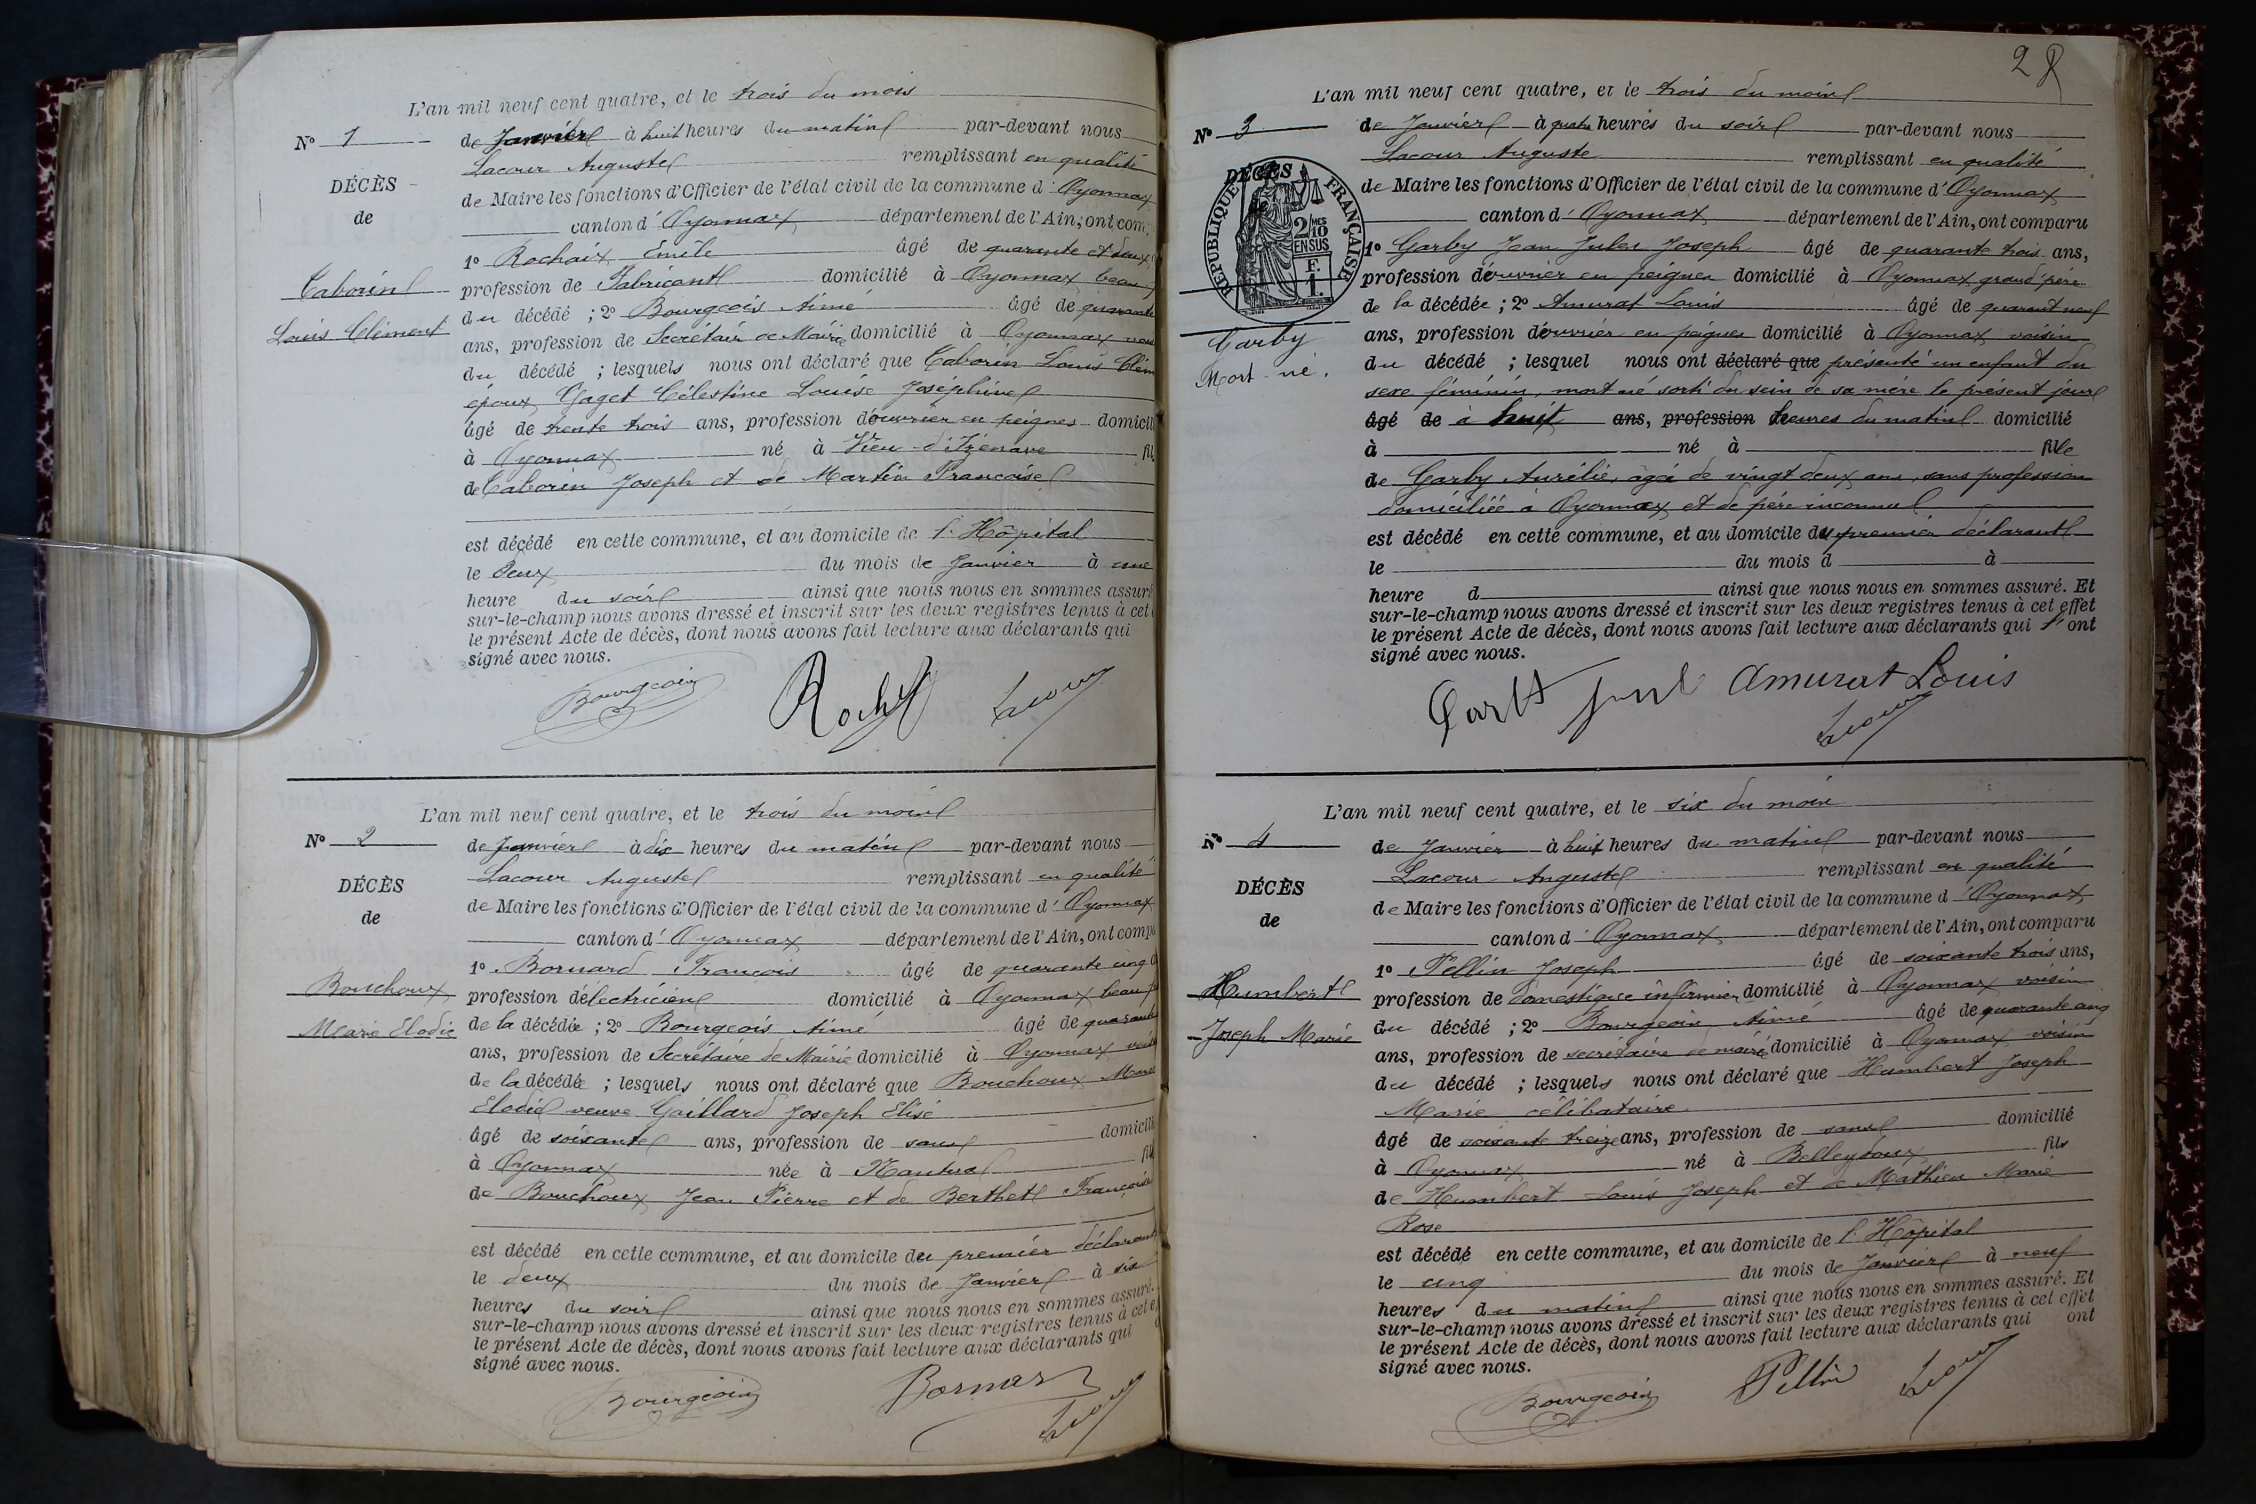 L'an mil neuf cent quatre, et le trois du mois
N° 1
de Janvier à huit heures du matin par-devant nous
Lacour Auguste remplissant en qualité
DÉCÈS
de Maire les fonctions d'Officier de l'état civil de la commune d'Oyonnax
de
canton d'Oyonnax département de l'Ain, ont com
1° Rochaix Emile âgé de quarante et deux
Caborin
profession de Fabricant domicilié à Oyonnax beau
du décédé ; 2° Bourgeois Aimé âgé de quarante
Louis Clément
ans, profession de Secrétaire de Mairie domicilié à Oyonnax
du décédé ; lesquels nous ont déclaré que Caborin Louis Clém
époux Gaget Célestine Louise Josephine
âgé de trente trois ans, profession d'ouvrier en peignes domicili
à Oyonnax né à Vieu d'Izenave fil
de Caborin Joseph et de Martin Francoise
est décédé en cette commune, et au domicile de l'Hôpital
le Deux du mois de Janvier à une
heure du soir ainsi que nous nous en sommes assuré
sur-le-champ nous avons dressé et inscrit sur les deux registres tenus à cet
le présent Acte de décès, dont nous avons fait lecture aux déclarants qui
signé avec nous.
Bourgeois Lacour
L'an mil neuf cent quatre, et le trois du mois
N° 2
de Janvier à dix heures du matin par-devant nous
Lacour Auguste remplissant en qualité
DÉCÈS
de Maire les fonctions d'Officier de l'état civil de la commune d'Oyonnax
de
canton d'Oyonnax département de l'Ain, ont compa
1° Bornard François âgé de quarante cinq a
Bouchoux
profession d'électricien domicilié à Oyonnax beau f
Marie Elodie
de la décédée ; 2° Bourgeois Aimé âgé de quarante
ans, profession de Secrétaire de Mairie domicilié à Oyonnax
de la décédée ; lesquels nous ont déclaré que Bouchoux Marie
Elodie veuve Gaillard Joseph Elisé
âgé de soixante ans, profession de sans domicili
à Oyonnax née à Nantua fil
de Bouchoux Jean Pierre et de Berthet Françoise
est décédé en cette commune, et au domicile du premier déclarant
le deux du mois de Janvier à six
heures du soir ainsi que nous nous en sommes assuré.
sur-le-champ nous avons dressé et inscrit sur les deux registres tenus à cet e
le présent Acte de décès, dont nous avons fait lecture aux déclarants qui
signé avec nous.
Bourgeois Bornard Lacour
28
L'an mil neuf cent quatre, et le trois du mois
N° 3
de Janvier à quatre heures du soir par-devant nous
Lacour Auguste remplissant en qualité
DÉCÈS
RÉPUBLIQUE FRANÇAISE
2/10 MES EN SUS
F. 1.
de Maire les fonctions d'Officier de l'état civil de la commune d'Oyonnax
canton d'Oyonnax département de l'Ain, ont comparu
1° Garby Jean Jules Joseph âgé de quarante trois ans,
profession d'ouvrier en peignes domicilié à Oyonnax grand'père
de la décédée ; 2° Amurat Louis âgé de quarant neuf
Garby
ans, profession d'ouvrier en peignes domicilié à Oyonnax voisin
Mort-né.
du décédé ; lesquel nous ont déclaré que présenté un enfant du
sexe féminin, mort né sorti du sein de sa mère le présent jour
âgé de à huit ans, profession heures du matin domicilié
à né à fille
de Garby Aurélie, agée de vingt deux ans, sans profession
domiciliée à Oyonnax et de père inconnu
est décédé en cette commune, et au domicile du premier déclarant
le du mois d à
heure d ainsi que nous nous en sommes assuré. Et
sur-le-champ nous avons dressé et inscrit sur les deux registres tenus à cet effet
le présent Acte de décès, dont nous avons fait lecture aux déclarants qui l'ont
signé avec nous.
Amurat Louis
Lacour
L'an mil neuf cent quatre, et le six du mois
N° 4
de Janvier à huit heures du matin par-devant nous
Lacour Auguste remplissant en qualité
DÉCÈS
de Maire les fonctions d'Officier de l'état civil de la commune d'Oyonnax
de
canton d'Oyonnax département de l'Ain, ont comparu
1° Pellin Joseph âgé de soixante trois ans,
Humbert
profession de domestique infirmier domicilié à Oyonnax voisin
Joseph Marie
du décédé ; 2° Bourgeois Aimé âgé de quarante cinq
ans, profession de secrétaire de mairie domicilié à Oyonnax voisin
du décédé ; lesquels nous ont déclaré que Humbert Joseph
Marie célibataire
âgé de soixante treize ans, profession de sans domicilié
à Oyonnax né à Belleydoux fils
de Humbert Louis Joseph et de Mathieu Marie
Rose
est décédé en cette commune, et au domicile de l'Hôpital
le cinq du mois de Janvier à neuf
heures du matin ainsi que nous nous en sommes assuré. Et
sur-le-champ nous avons dressé et inscrit sur les deux registres tenus à cet effet
le présent Acte de décès, dont nous avons fait lecture aux déclarants qui ont
signé avec nous.
Bourgeois Pellin Lacour